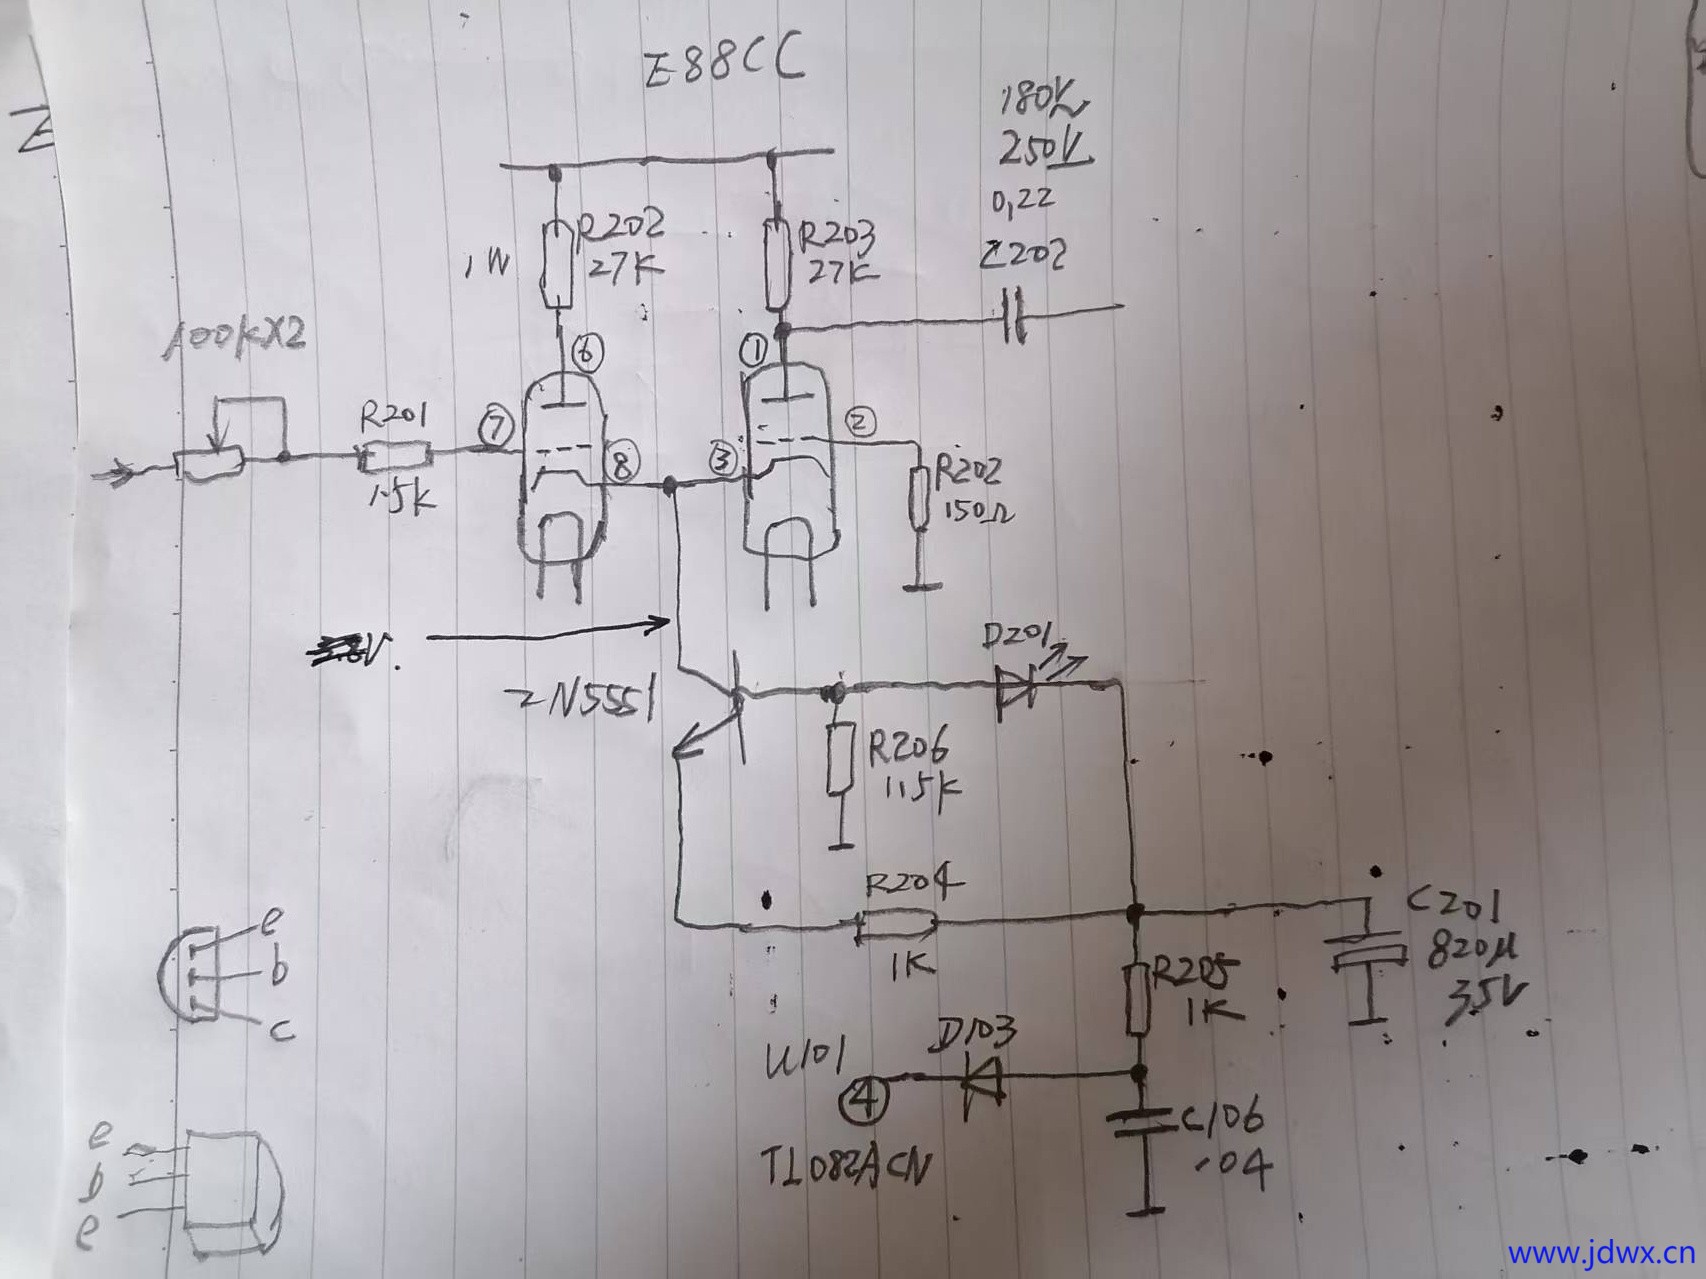 E88CC
180V
250V
0,22
C202
R202
27K
1W
R203
27K
100K×2
R201
1.5K
⑥
①
⑦
⑧
③
②
R202
150Ω
2N5551
D201
R206
1.5K
R204
1K
C201
820μ
35V
R205
1K
U101
④
D103
TL082ACN
C106
.04
e
b
c
e
b
e
www.jdwx.cn